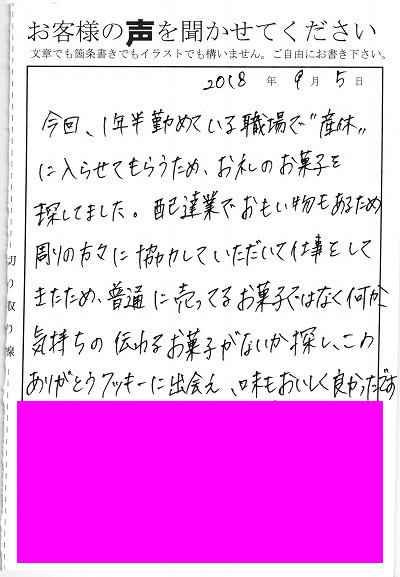 お客様の声を聞かせてください
文章でも箇条書きでもイラストでも構いません。ご自由にお書き下さい。
2018年9月5日
今回、1年半勤めている職場で"産休"
に入らせてもらうため、お礼のお菓子を
探してました。配達業でおもい物もあるため
周りの方々に協力していただいて仕事をして
きたため、普通に売ってるお菓子ではなく何か
気持ちの伝わるお菓子がないか探し、この
ありがとうクッキーに出会え、味もおいしく良かったです
切り取り線